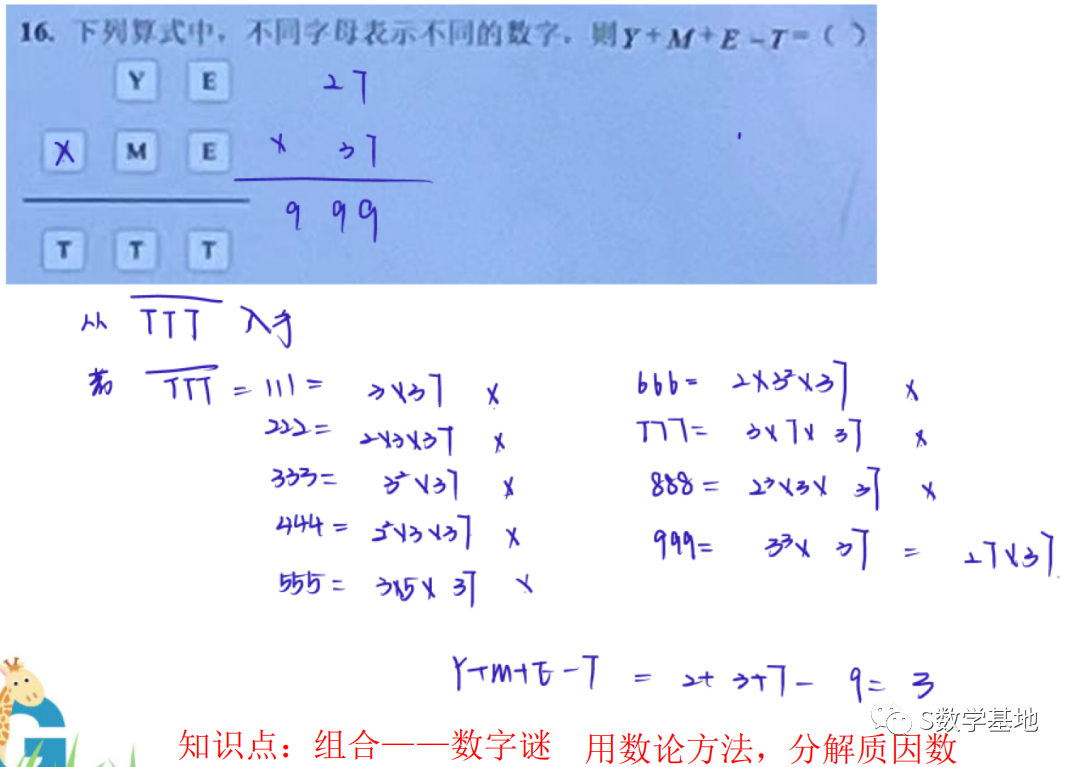 16. 下列算式中，不同字母表示不同的数字，则Y+M+E-T=( )
Y E 27
X M E × 37
T T T 999
从 TTT 入手
若 TTT = 111 = 3×37 ×
222 = 2×3×37 ×
333 = 3²×37 ×
444 = 2²×3×37 ×
555 = 3×5×37 ×
666 = 2×3²×37 ×
777 = 3×7×37 ×
888 = 2³×3×37 ×
999 = 3³×37 = 27×37
Y+M+E-T = 2+3+7-9=3
S数学基地
知识点：组合——数字谜 用数论方法，分解质因数